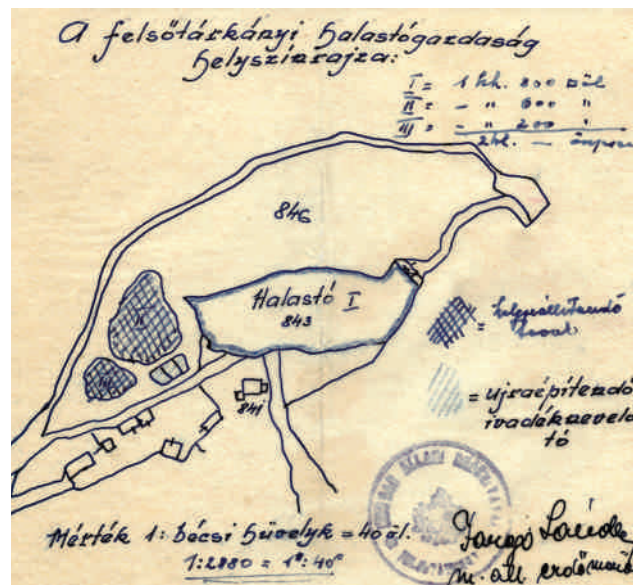 A felsőtárkányi halastógazdaság
helyszínrajza:
I = 1 kh. 800 □öl
II = – " 600 "
III = – " 200 "
2 kh. –
846
Halastó I
843
II
III
841
= helyreállítandó
tavak
= ujraépítendő
ivadéknevelő
tó
Mérték 1: bécsi hüvelyk = 40 öl.
1:2880 = 1": 40°
m. áll. erdőmérn